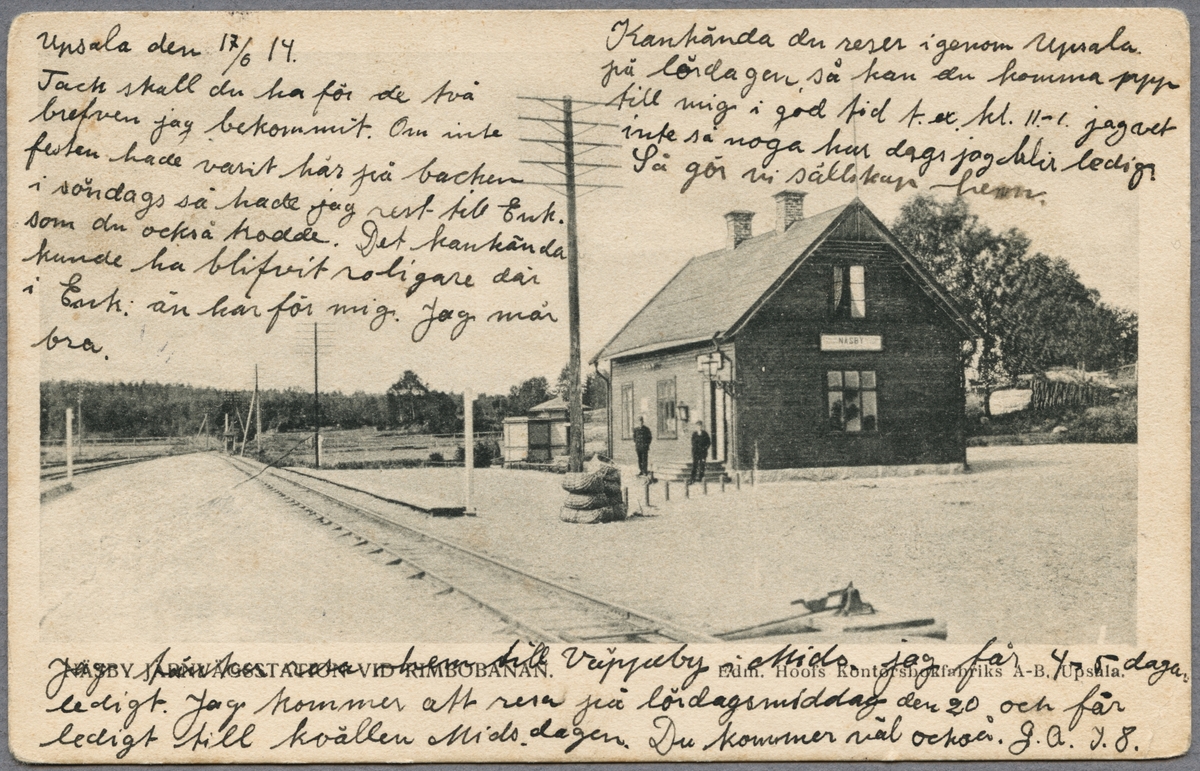 Upsala den 17/6 14.
Tack skall du ha för de två
brefven jag bekommit. Om inte
festen hade varit här på backen
i söndags så hade jag rest till Enk.
som du också trodde. Det kankända
kunde ha blifvit roligare där
i Enk. än här för mig. Jag mår
bra.
Kankända du reser igenom Upsala
på lördagen, så kan du komma upp
till mig i god tid t. ex. kl. 11-1. jag vet
inte så noga hur dags jag blir ledig.
Så gör vi sällskap hem.
NÄSBY
Jag får resa hem till Väppeby i Mids. jag får 4-5 dagar
NÄSBY JÄRNVÄGSSTATION VID RIMBOBANAN.
Edm. Hoofs Kontorsbokfabriks A-B, Upsala.
ledigt. Jag kommer att resa på lördagsmiddag den 20 och får
ledigt till kvällen Mids.dagen. Du kommer väl också. G. A. J. 8.